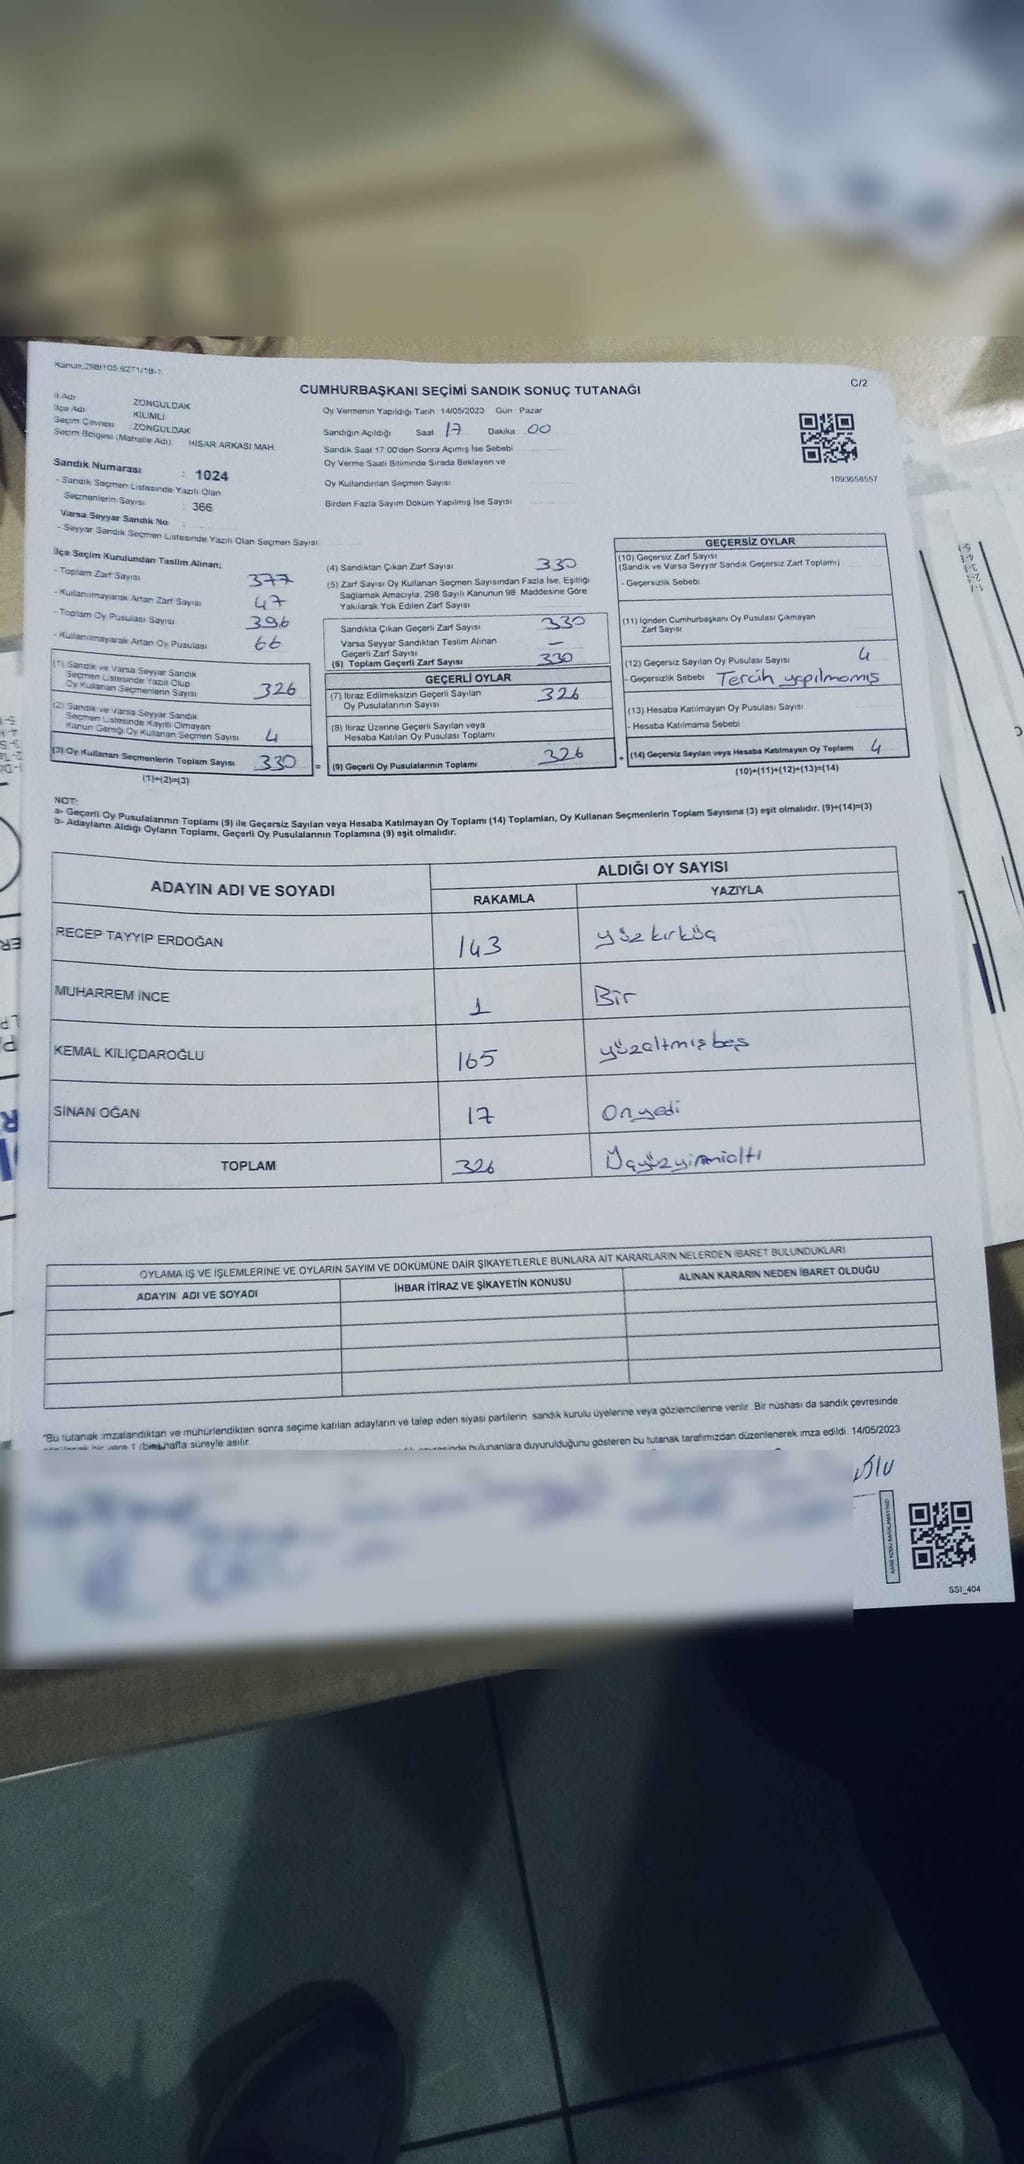 Kanun:298/105,6271/18-1
C/2
CUMHURBAŞKANI SEÇİMİ SANDIK SONUÇ TUTANAĞI
İl Adı ZONGULDAK
İlçe Adı KİLİMLİ
Seçim Çevresi : ZONGULDAK
Seçim Bölgesi (Mahalle Adı) HİSAR ARKASI MAH.
Sandık Numarası : 1024
- Sandık Seçmen Listesinde Yazılı Olan
Seçmenlerin Sayısı : 366
Varsa Seyyar Sandık No :
- Seyyar Sandık Seçmen Listesinde Yazılı Olan Seçmen Sayısı
Oy Vermenin Yapıldığı Tarih 14/05/2023 Gün Pazar
Sandığın Açıldığı Saat 17 Dakika 00
Sandık Saat 17:00'den Sonra Açımış İse Sebebi
Oy Verme Saati Bitiminde Sırada Bekleyen ve
Oy Kullandırılan Seçmen Sayısı
Birden Fazla Sayım Döküm Yapılmış İse Sayısı
1093658557
İlçe Seçim Kurulundan Teslim Alınan;
- Toplam Zarf Sayısı 377
- Kullanılmayarak Artan Zarf Sayısı 47
- Toplam Oy Pusulası Sayısı 396
- Kullanılmayarak Artan Oy Pusulası 66
(1) Sandık ve Varsa Seyyar Sandık
Seçmen Listesinde Yazılı Olup
Oy Kullanan Seçmenlerin Sayısı 326
(2) Sandık ve Varsa Seyyar Sandık
Seçmen Listesinde Kayıtlı Olmayan
Kanun Gereği Oy Kullanan Seçmen Sayısı 4
(3) Oy Kullanan Seçmenlerin Toplam Sayısı 330 =
(1)+(2)=(3)
(4) Sandıktan Çıkan Zarf Sayısı 330
(5) Zarf Sayısı Oy Kullanan Seçmen Sayısından Fazla İse, Eşitliği
Sağlamak Amacıyla; 298 Sayılı Kanunun 98. Maddesine Göre
Yakılarak Yok Edilen Zarf Sayısı
Sandıkta Çıkan Geçerli Zarf Sayısı 330
Varsa Seyyar Sandıktan Teslim Alınan
Geçerli Zarf Sayısı —
(6) Toplam Geçerli Zarf Sayısı 330
GEÇERLİ OYLAR
(7) İtiraz Edilmeksizin Geçerli Sayılan
Oy Pusulalarının Sayısı 326
(8) İtiraz Üzerine Geçerli Sayılan veya
Hesaba Katılan Oy Pusulası Toplamı
(9) Geçerli Oy Pusulalarının Toplamı 326 +
GEÇERSİZ OYLAR
(10) Geçersiz Zarf Sayısı
(Sandık ve Varsa Seyyar Sandık Geçersiz Zarf Toplamı)
- Geçersizlik Sebebi
(11) İçinden Cumhurbaşkanı Oy Pusulası Çıkmayan
Zarf Sayısı
(12) Geçersiz Sayılan Oy Pusulası Sayısı 4
- Geçersizlik Sebebi Tercih yapılmamış
(13) Hesaba Katılmayan Oy Pusulası Sayısı
- Hesaba Katılmama Sebebi
(14) Geçersiz Sayılan veya Hesaba Katılmayan Oy Toplamı 4
(10)+(11)+(12)+(13)=(14)
NOT:
a- Geçerli Oy Pusulalarının Toplamı (9) ile Geçersiz Sayılan veya Hesaba Katılmayan Oy Toplamı (14) Toplamları, Oy Kullanan Seçmenlerin Toplam Sayısına (3) eşit olmalıdır. (9)+(14)=(3)
b- Adayların Aldığı Oyların Toplamı, Geçerli Oy Pusulalarının Toplamına (9) eşit olmalıdır.
ADAYIN ADI VE SOYADI
ALDIĞI OY SAYISI
RAKAMLA YAZIYLA
RECEP TAYYİP ERDOĞAN 143 yüzkırküç
MUHARREM İNCE 1 Bir
KEMAL KILIÇDAROĞLU 165 yüzaltmışbeş
SİNAN OĞAN 17 Onyedi
TOPLAM 326 Üçyüzyirmialtı
OYLAMA İŞ VE İŞLEMLERİNE VE OYLARIN SAYIM VE DÖKÜMÜNE DAİR ŞİKAYETLERLE BUNLARA AİT KARARLARIN NELERDEN İBARET BULUNDUKLARI
ADAYIN ADI VE SOYADI
İHBAR İTİRAZ VE ŞİKAYETİN KONUSU
ALINAN KARARIN NEDEN İBARET OLDUĞU
"Bu tutanak imzalandıktan ve mühürlendikten sonra seçime katılan adayların ve talep eden siyasi partilerin sandık kurulu üyelerine veya gözlemcilerine verilir. Bir nüshası da sandık çevresinde
bir yere 1 (bir) hafta süreyle asılır.
bulunanlara duyurulduğunu gösteren bu tutanak tarafımızdan düzenlenerek imza edildi. 14/05/2023
SSİ_404